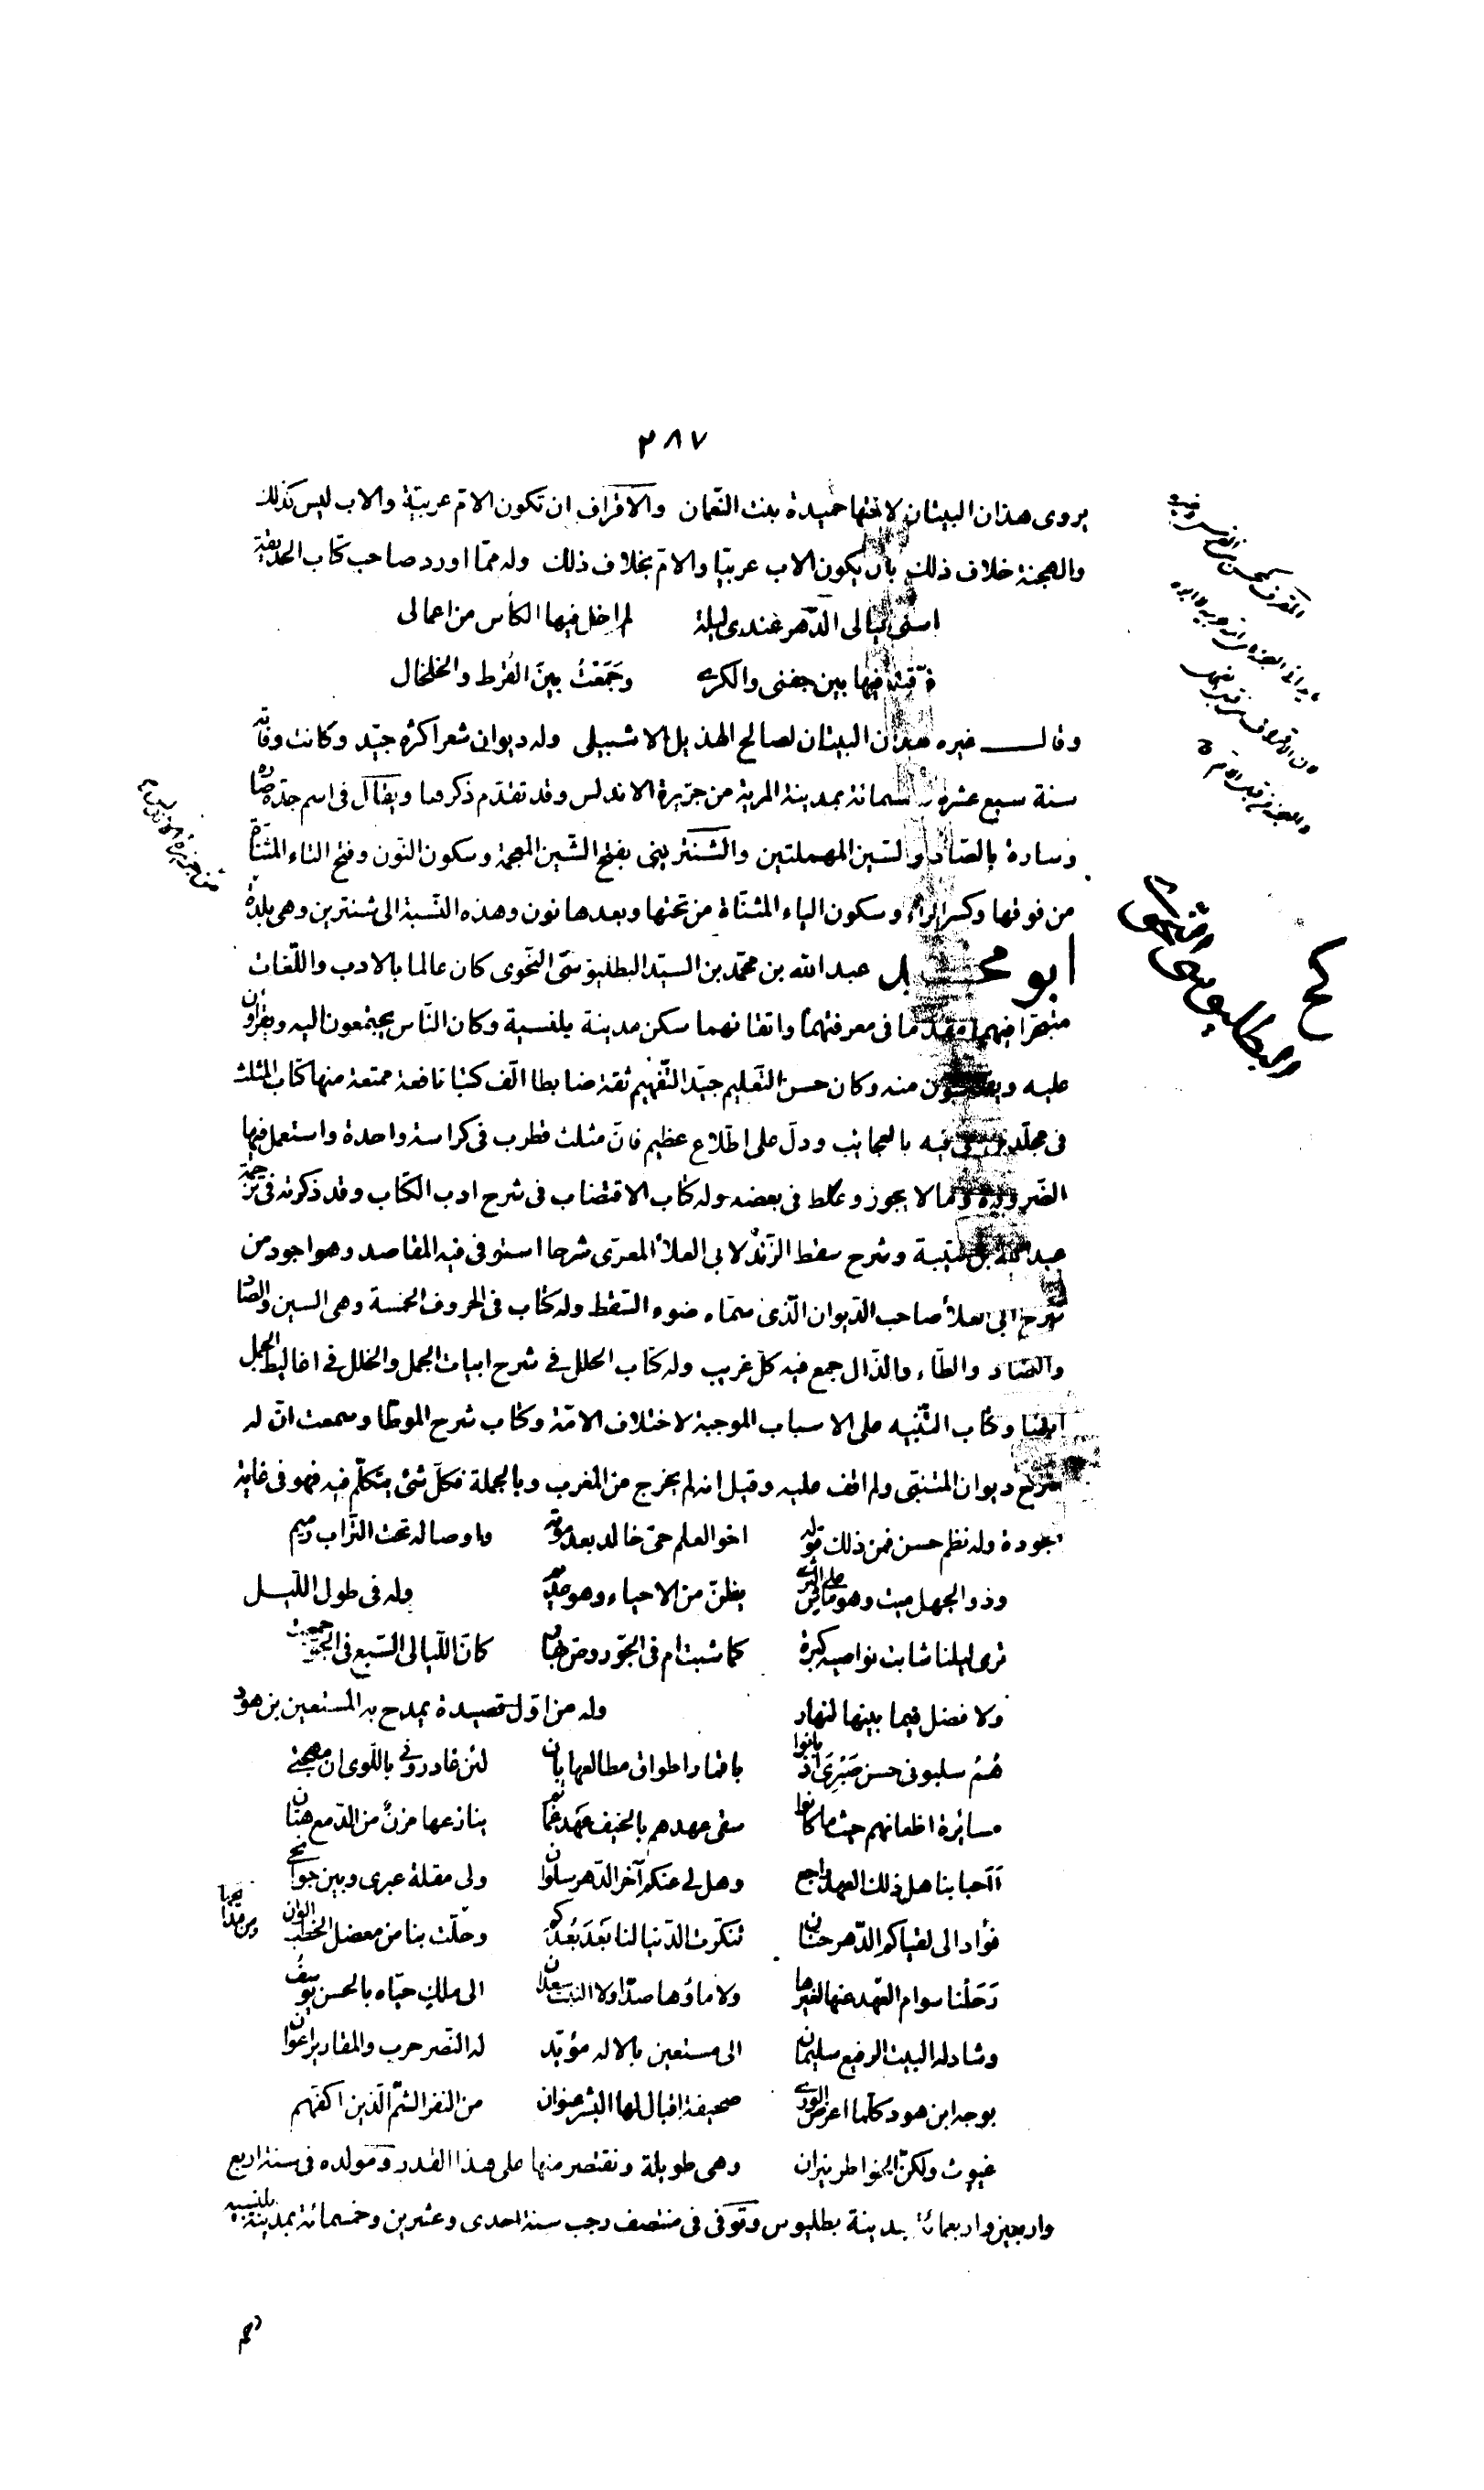 ٢٨٧
يروى هذان البيتان لاختها حميدة بنت النّعمان والاقراف ان تكون الامّ عربيّة والاب ليس كذلك
والهجنة خلاف ذلك بان يكون الاب عربيّا والامّ بخلاف ذلك وله ممّا اورد صاحب كتاب الحديقة
اسنى ليالى الدّهر عندى ليلة لم اخل فيها الكأس من اعمالى
فرّقت فيها بين جفنى والكرى وجَمَعْتُ بينَ القُرط والخلخال
وقال غيره هذان البيتان لصالح الهذيل الاشبيلى وله ديوان شعر اكثره جيّد وكانت وفاته
سنة سبع عشرة وخسمائة بمدينة المرية من جزيرة الاندلس وقد تقدّم ذكرها ويقال فى اسم جدّه صاره
وسارة بالصّاد والسّين المهملتين والشّنترينى بفتح الشّين المعجمة وسكون النّون وفتح التاء المثنّاة
من فوقها وكسر الراء وسكون الياء المثنّاة من تحتها وبعدها نون وهذه النّسبة الى شنترين وهى بلدة
ابو محمد عبد الله بن محمّد بن السيّد البطليوسىّ النّحوى كان عالما بالادب واللّغات
متبحّرا فيهما مقدّما فى معرفتهما واتقانهما سكن مدينة بلنسية وكان النّاس يجتمعون اليه ويقرأون
عليه ويقتبسون منه وكان حسن التّعليم جيّد التّفهيم ثقة ضابطا الّف كتبا نافعة ممتعة منها كتاب المثلث
فى مجلّدين اتى فيه بالعجائب ودلّ على اطّلاع عظيم فانّ مثلث قطرب فى كراسة واحدة واستعمل فيها
الضّرورة وما لا يجوز وغلط فى بعضه وله كتاب الاقتضاب فى شرح ادب الكتّاب وقد ذكرته فى ترجمة
عبد الله بن قتيبة وشرح سقط الزّند لابى العلأ المعرّى شرحا استوفى فيه المقاصد وهو اجود من
شرح ابى العلأ صاحب الدّيوان الّذى سمّاه ضوء السّقط وله كتاب فى الحروف الخمسة وهى السين والصّاد
والضّاد والطّاء والذّال جمع فيه كلّ غريب وله كتاب الحلل فى شرح ابيات الجمل والخلل فى اغاليط الجمل
ايضا وكتاب التّنبيه على الاسباب الموجبة لاختلاف الامّة وكتاب شرح الموطّا وسمعت انّ له
شرح ديوان المتنبّى ولم اقف عليه وقيل انه لم يخرج من المغرب وبالجملة فكلّ شئ يتكلّم فيه فهو فى غاية
الجودة وله نظم حسن فمن ذلك قوله اخو العلم حىّ خالد بعد موته واوصاله تحت التّراب رميم
وذو الجهل ميت وهو ماش على الثرى يظنّ من الاحياء وهو عديم وله فى طول اللّيل
ترى ليلنا شابت نواصيه كبرة كما شبت ام فى الجوّ روض بهار كانّ اللّيالى السّبع فى الجوّ جمعت
ولا فضل فيما بينها لنهار وله من اوّل قصيدة يمدح به المستعين بن هود
هُمُ سلبونى حسن صَبْرِى اذ بانوا باقمار اطواق مطالعها بان لئن غادرونى باللّوى ان مهجتى
مسائرة اظعانهم حيثما كانوا سقى عهدهم بالخيف عهد غمائم ينازعها مزنٌ من الدّمع هتّان
أاحبابنا هل ذلك العهد راجع وهل لى عنكم آخر الدّهر سلوان ولى مقلة عبرى وبين جوانحى
فؤاد الى لقياكم الدّهر حنّان تنكّرت الدّنيا لنا بَعدَ بُعْدكم وحلّت بنا من معضل الخطب الوان
رَحَلْنا سوام العهد عنها لغيرها ولا ماؤها صدّا ولا النبت سعدان الى ملك حبّاه بالحسن يوسف
وشاد له البيت الرفيع سليمان الى مستعين بالاله مؤيّد له النّصر حرب والمقادير اعوان
بوجه ابن هود كلّما اعرض الورى صحيفة اقبال لها البشر عنوان من النفر الشّمّ الّذين اكفّهم
غيوث ولكنّ الخواطر نيران وهى طويلة ونقتصر منها على هذا القدر ومولده فى سنة اربع
واربعين واربعمائة بمدينة بطليوس وتوفّى فى منتصف رجب سنة احدى وعشرين وخسمائة بمدينة بلنسيه